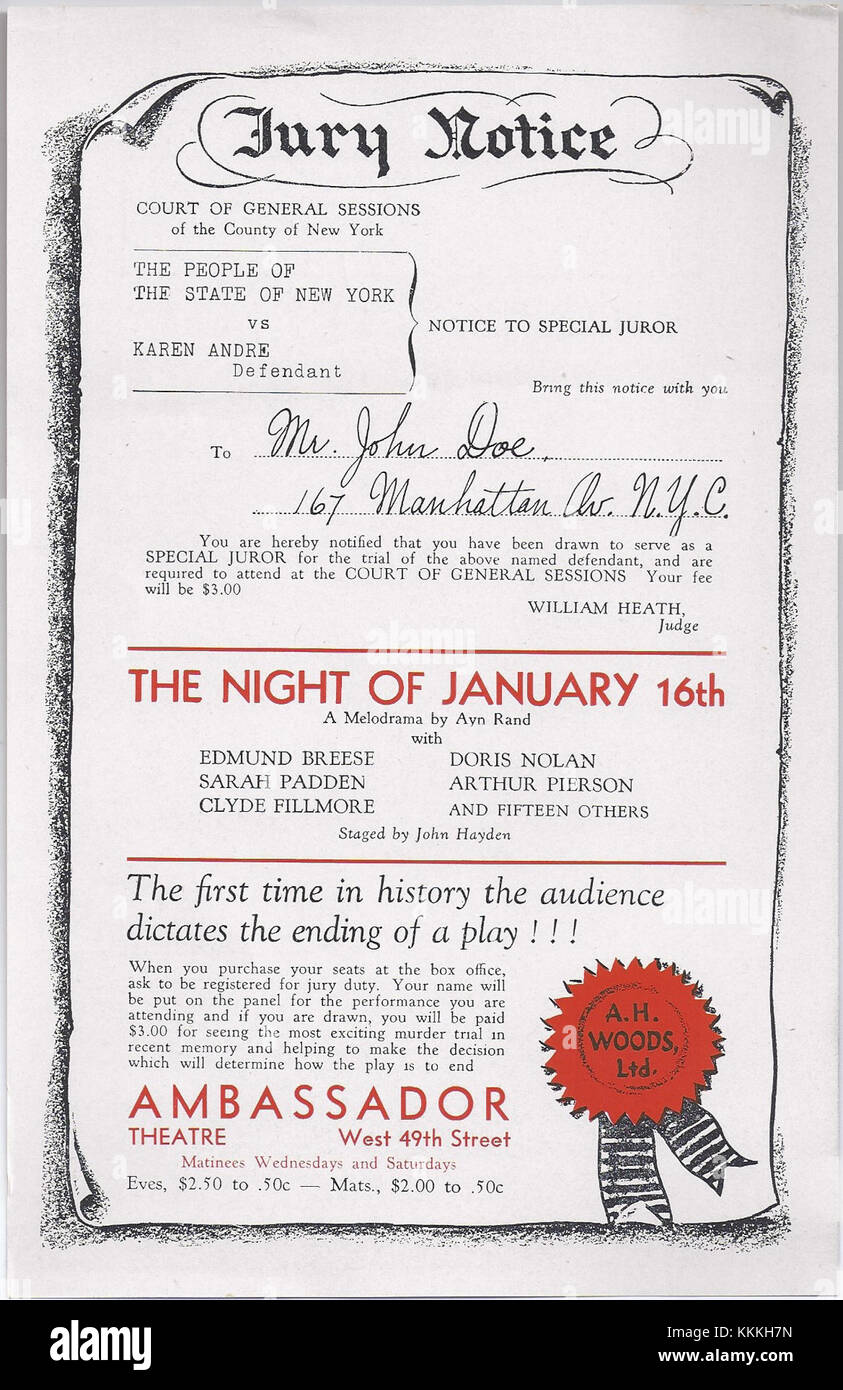 Jury Notice
COURT OF GENERAL SESSIONS
of the County of New York
THE PEOPLE OF
THE STATE OF NEW YORK
vs
KAREN ANDRE
Defendant
NOTICE TO SPECIAL JUROR
Bring this notice with you
To Mr. John Doe,
167 Manhattan Av. N.Y.C.
You are hereby notified that you have been drawn to serve as a
SPECIAL JUROR for the trial of the above named defendant, and are
required to attend at the COURT OF GENERAL SESSIONS Your fee
will be $3.00
WILLIAM HEATH,
Judge
THE NIGHT OF JANUARY 16th
A Melodrama by Ayn Rand
with
EDMUND BREESE DORIS NOLAN
SARAH PADDEN ARTHUR PIERSON
CLYDE FILLMORE AND FIFTEEN OTHERS
Staged by John Hayden
The first time in history the audience
dictates the ending of a play ! ! !
When you purchase your seats at the box office,
ask to be registered for jury duty. Your name will
be put on the panel for the performance you are
attending and if you are drawn, you will be paid
$3.00 for seeing the most exciting murder trial in
recent memory and helping to make the decision
which will determine how the play is to end
A.H.
WOODS,
Ltd.
AMBASSADOR
THEATRE West 49th Street
Matinees Wednesdays and Saturdays
Eves, $2.50 to .50c — Mats., $2.00 to .50c
alamy
Image ID: KKKH7N
www.alamy.com